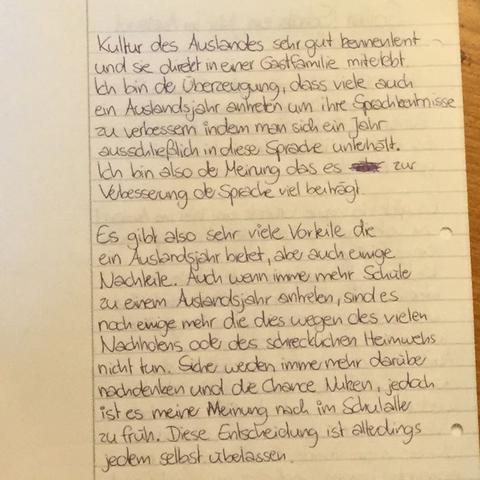 Kultur des Auslandes sehr gut kennenlernt
und sie direkt in einer Gastfamilie miterlebt.
Ich bin de Überzeugung, dass viele auch
ein Auslandsjahr antreten um ihre Sprachkentnisse
zu verbessern indem man sich ein Jahr
ausschließlich in diese Sprache unterhält.
Ich bin also de Meinung das es zur
Verbesserung de Sprache viel beiträgt.
Es gibt also sehr viele Vorteile die
ein Auslandsjahr bietet, aber auch einige
Nachteile. Auch wenn imme mehr Schüle
zu einem Auslandsjahr antreten, sind es
noch einige mehr die dies wegen des vielen
Nachholens ode des schrecklichen Heimwehs
nicht tun. Siche werden imme mehr darübe
nachdenken und die Chance Nutzen, jedoch
ist es meiner Meinung nach im Schulalte
zu früh. Diese Entscheidung ist alledings
jedem selbst überlassen.